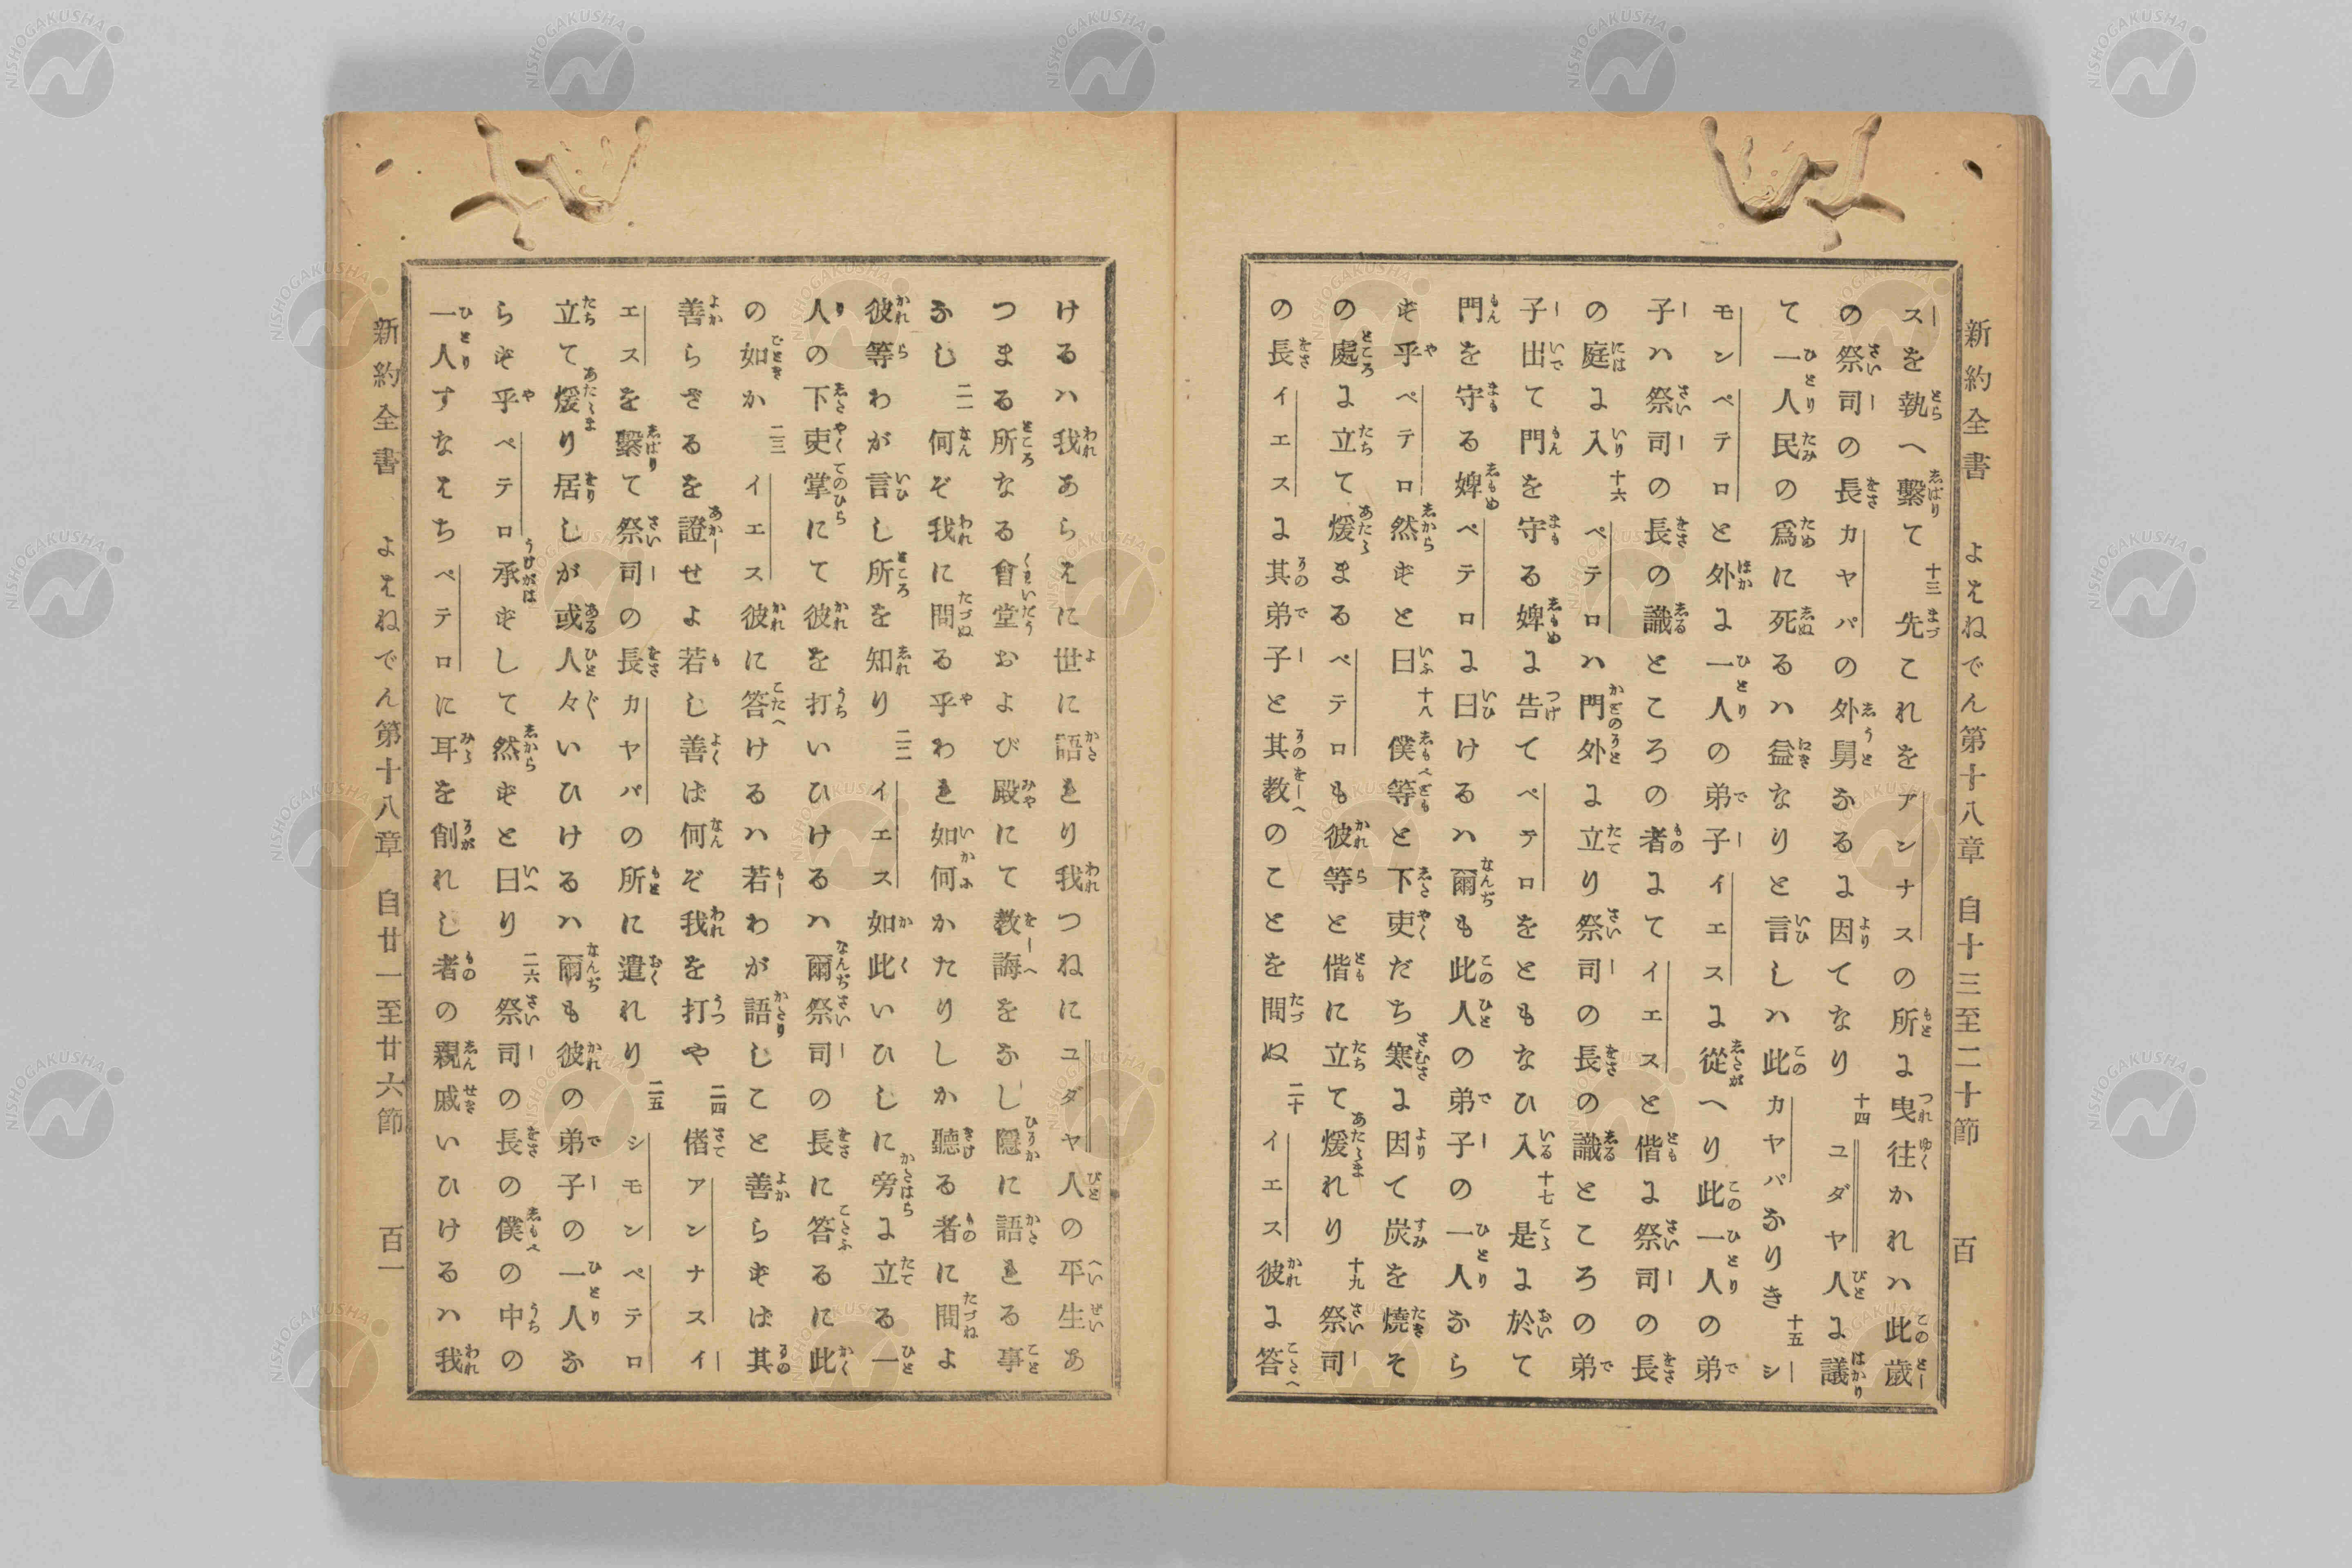 新約全書 よはねでん第十八章 自十三至二十節 百
スを執へ繫て 十三 先これをアンナスの所に曳往かれハ此歲
の祭司の長カヤパの外舅なるに因てなり 十四 ユダヤ人に議
て一人民の爲に死るハ益なりと言しハ此カヤパなりき 十五 シ
モンペテロと外に一人の弟子イエスに從へり此一人の弟
子ハ祭司の長の識ところの者にてイエスと偕に祭司の長
の庭に入 十六 ペテロハ門外に立てり祭司の長の識ところの弟
子出て門を守る婢に告てペテロをともなひ入 十七 是に於て
門を守る婢ペテロに曰けるハ爾も此人の弟子の一人なら
ずや乎ペテロ然ずと曰 十八 僕等と下吏だち寒に因て炭を燒そ
の處に立て煖まるペテロも彼等と偕に立て煖れり 十九 祭司
の長イエスに其弟子と其教のことを問ぬ 二十 イエス彼に答
けるハ我あらはに世に語たり我つねにユダヤ人の平生あ
つまる所なる會堂および殿にて教誨をなし隱に語たる事
なし 二一 何ぞ我に問る乎わたし如何かたりしか聽る者に問よ
彼等わが言し所を知り 二二 イエス如此いひしに旁に立る一
人の下吏掌にて彼を打いひけるハ爾祭司の長に答るに此
の如か 二三 イエス彼に答けるハ若わが語しこと善らずば其
善らざるを證せよ若し善ば何ぞ我を打や 二四 偖アンナスイ
エスを繫て祭司の長カヤパの所に遣れり 二五 シモンペテロ
立て煖り居しが或人々いひけるハ爾も彼の弟子の一人な
らず乎ペテロ承ずして然ずと曰り 二六 祭司の長の僕の中の
一人すなはちペテロに耳を削れし者の親戚いひけるハ我
新約全書 よはねでん第十八章 自廿一至廿六節 百一
NISHOGAKUSHA